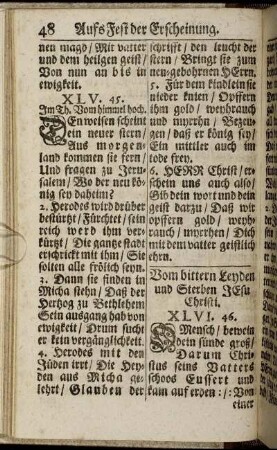 48 Auffs Fest der Erscheinung.
nen magd/ Mit vatter
und dem heilgen geist/
Von nun an bis in
ewigkeit.
XLV. 45.
Im Th. Vom himmel hoch.
DEn weisen scheint
ein neuer stern/
Aus morgen-
land kommen sie fern/
Und fragen zu Jeru-
salem/ Wo der neu kö-
nig sey daheim?
2. Herodes wird drüber
bestürzt/ Fürchtet/ sein
reich werd ihm ver-
kürzt/ Die gantze stadt
erschrickt mit ihm/ Sie
solten alle frölich seyn.
3. Dann sie finden in
Micha stehn/ Daß der
Hertzog zu Bethlehem
Sein ausgang hab von
ewigkeit/ Drum sucht
er kein vergänglichkeit.
4. Herodes mit den
Jüden irrt/ Die Hey-
den aus Micha ge-
lehrt/ Glauben der
schrifft/ den leucht der
stern/ Bringt sie zum
neu-gebohrnen HErrn.
5. Für dem kindlein sie
nieder knien/ Opffern
ihm gold/ weyhrauch
und myrrhn/ Bezeu-
gen/ daß er könig sey/
Ein mittler auch im
tode frey.
6. HERR Christ/ er-
schein uns auch also/
Gib dein wort und dein
geist darzu/ Daß wir
opffern gold/ weyh-
rauch/ myrrhen/ Dich
mit dem vatter geistlich
ehrn.
Vom bittern Leyden
und Sterben JEsu
Christi.
XLVI. 46.
O Mensch/ bewein
dein sünde groß/
Darum Chri-
stus seins Vatters
schoos Eussert und
kam auf erden :/: Von
einer